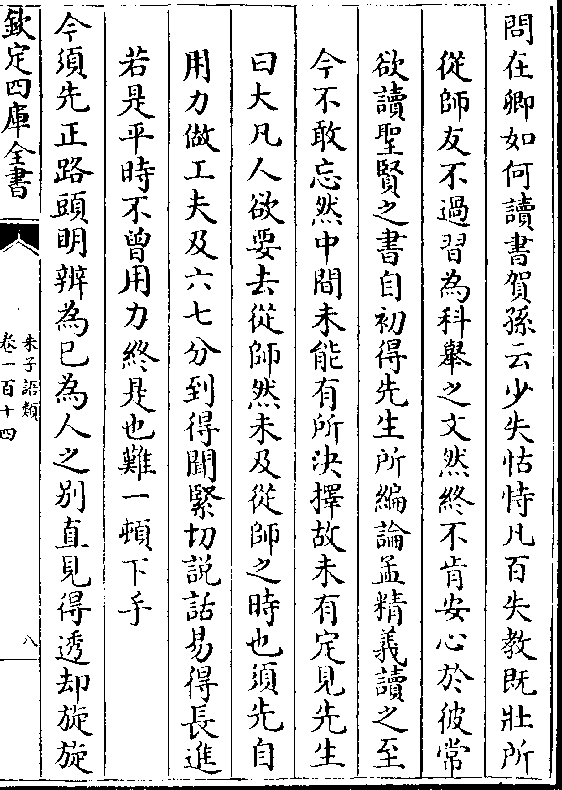 問在卿如何讀書賀孫云少失怙恃凡百失教既壯所
從師友不過習為科舉之文然終不肯安心於彼常
欲讀聖賢之書自初得先生所編論孟精義讀之至
今不敢忘然中間未能有所決擇故未有定見先生
曰大凡人欲要去從師然未及從師之時也須先自
用力做工夫及六七分到得聞緊切說話易得長進
若是平時不曾用力終是也難一頓下手
今須先正路頭明辨為已為人之别直見得透却旋旋
欽定四庫全書
朱子語類
卷一百十四
八